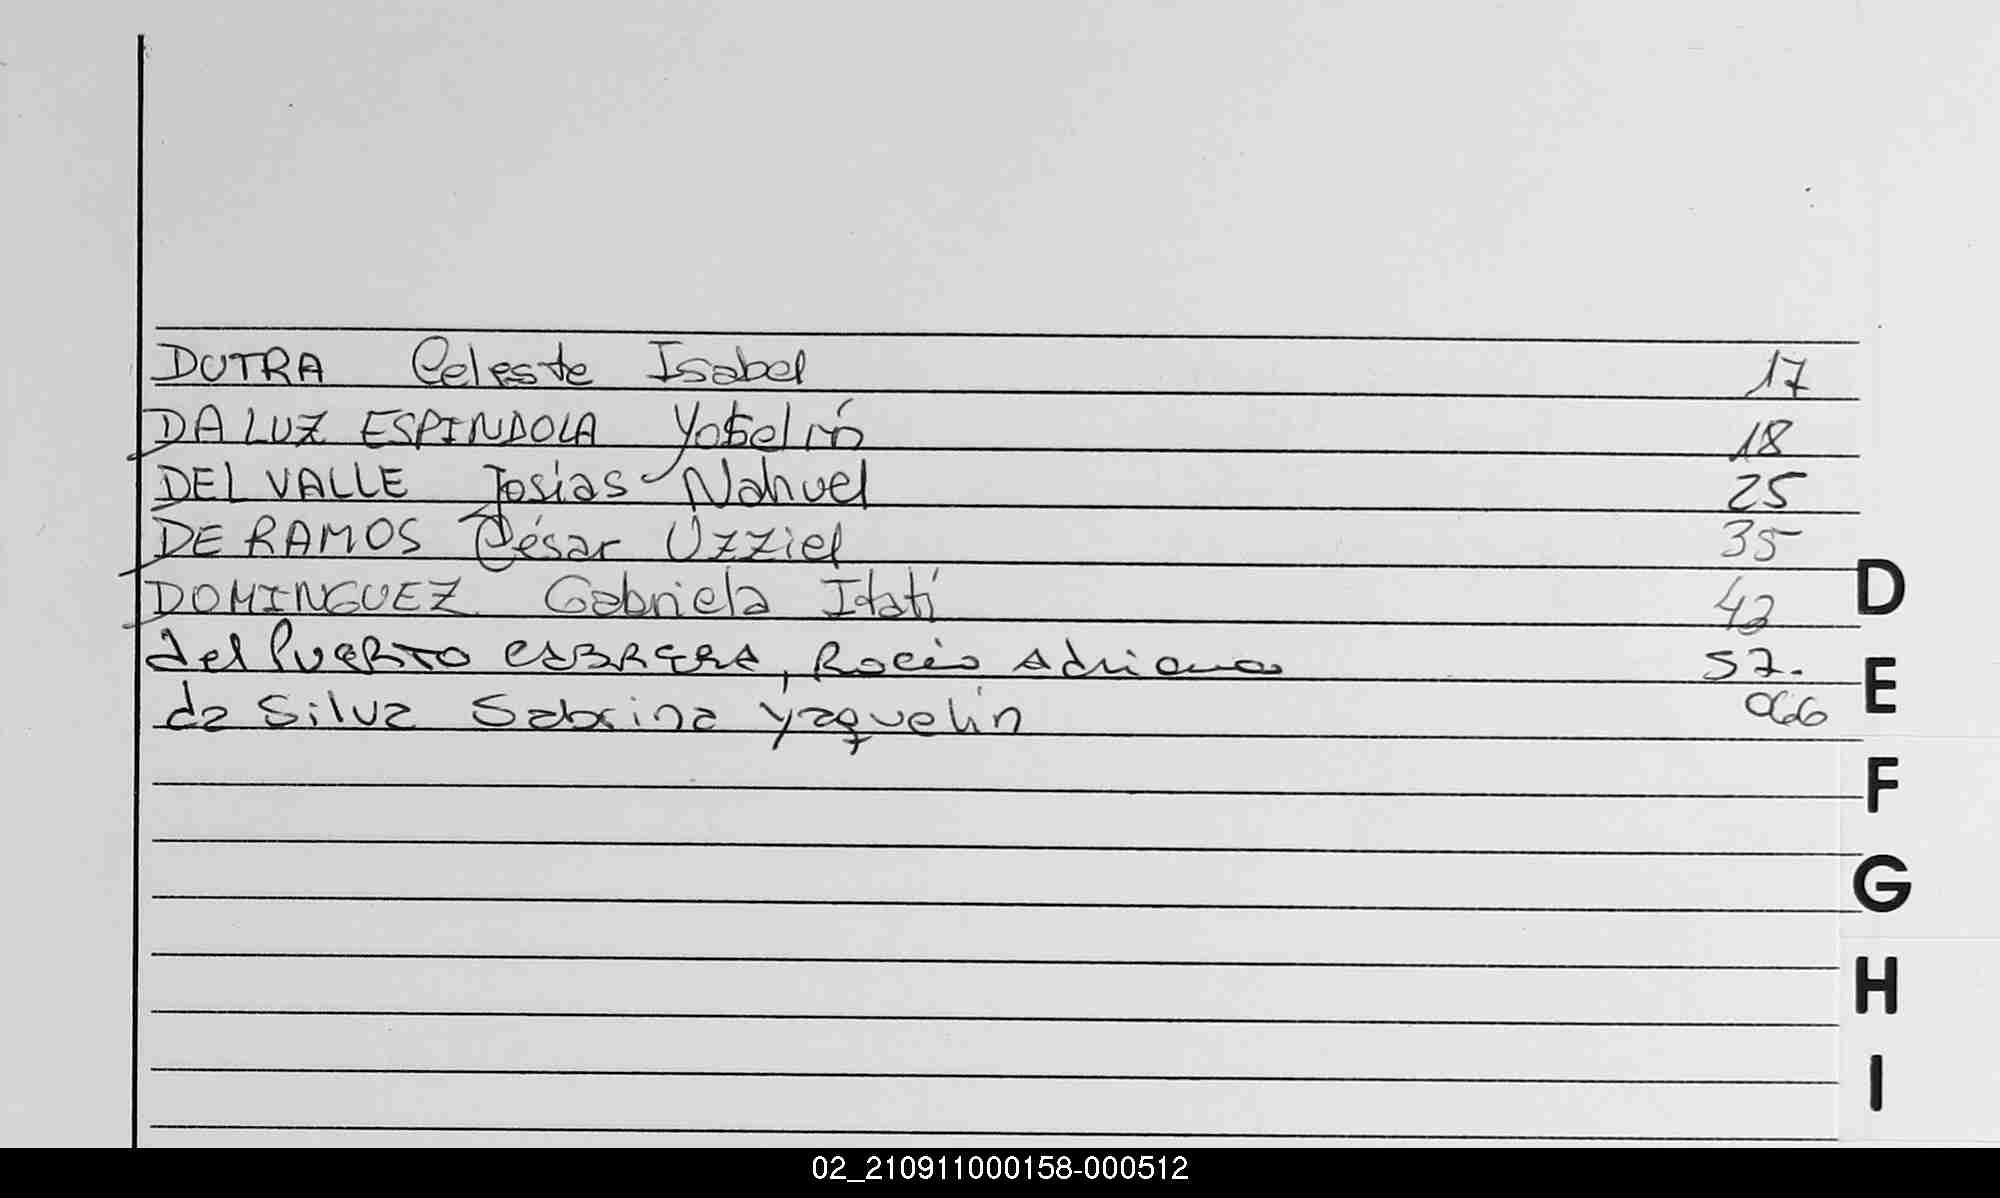 DUTRA Celeste Isabel 17
DA LUZ ESPINDOLA 18
DEL VALLE Josías Nahuel 25
DE RAMOS César Uzziel 35
D
DOMINGUEZ Gabriela Itatí 42
del PUERTO CABRERA, Rocío Adriana 57.
E
da Silva Sabrina Yaquelin 066
F
G
H
I
02_210911000158-000512